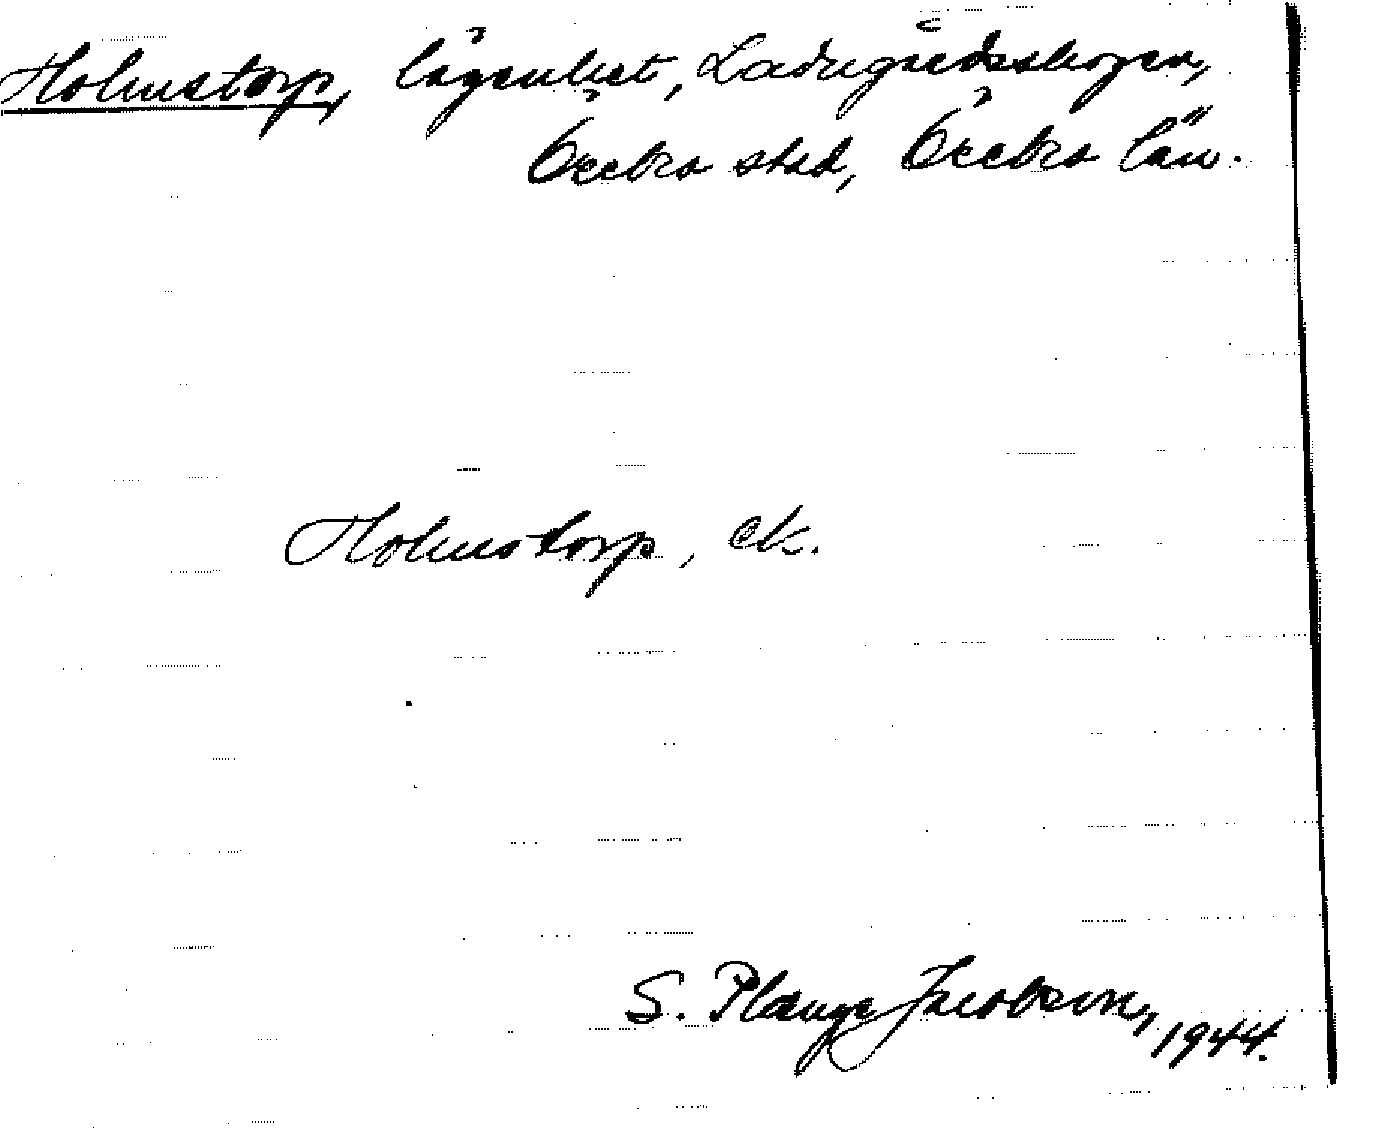 Holmstorp, lägenhet, Ladugårdsskogen,
Örebro stad, Örebro län.
Holmstorp, ek.
S. Plange Jacobson,
1944.